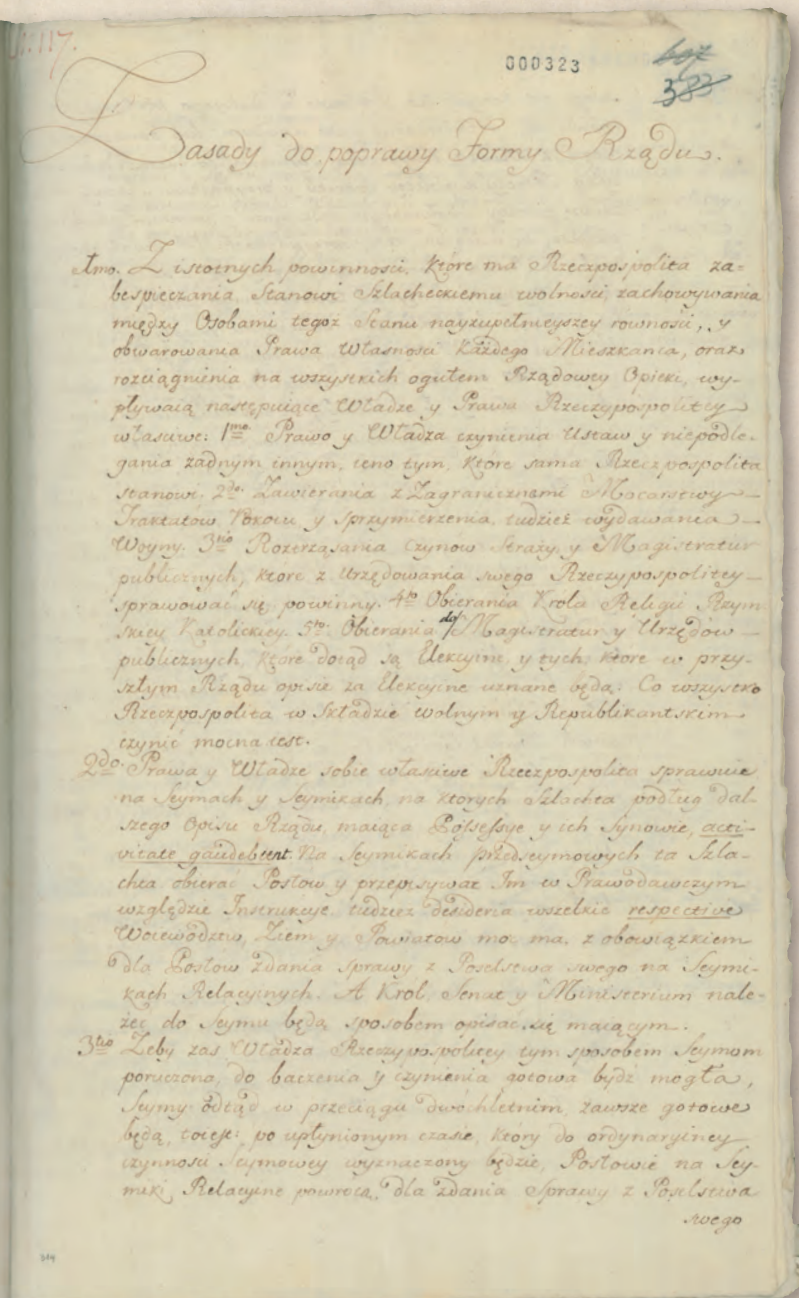 N: 117.
000323
383
Zasady do poprawy Formy Rządu.
1mo. Z istotnych powinności, które ma Rzeczpospolita za=
bespieczania Stanowi Szlacheckiemu wolności, zachowywania
między Osobami tegoż Stanu nayzupełnieyszey rowności, y
obwarowania Prawa Własności każdego Mieszkańca, oraz
rozciągnienia na wszystkich ogułem Rządowey Opieki, wy-
pływaią następuiące Władze y Prawa Rzeczypospolitey
właściwe: 1mo Prawo y Władza czynienia Ustaw y niepodle-
gania żadnym innym, ieno tym, które sama Rzeczpospolita
stanowi. 2do. Zawierania z Zagranicznemi Mocarstwy
Traktatów Pokoiu y sprzymierzenia, tudzież wydawania
Woyny. 3tio Roztrząsania Czynow Straży y Magistratur
publicznych, które z Urzędowania swego Rzeczypospolitey
sprawować się powinny. 4to Obierania Krola Religii Rzym
skiey Katolickiey. 5to. Obierania do Magistratur y Urzędow
publicznych, które dotąd są Elekcyine, y tych, które w przy-
szłym Rządu opisie za Elekcyine uznane będą. Co wszystko
Rzeczpospolita w Składzie wolnym y Republikantskim
czynić mocna iest.
2do. Prawa y Władze sobie właściwe Rzeczpospolita sprawuie
na Seymach y Seymikach, na ktorych Szlachta podług dal-
szego Opisu Rządu, maiąca Possessye y ich Synowie, acti-
vitate gaudebunt. Na Seymikach przedseymowych ta Szla-
chta obierać Posłow y przepisywać Im w Prawodawczym
względzie Instrukcye, tudzież desideria wszelkie respective
Woiewodztw, Ziem y Powiatow moc ma, z obowiązkiem
dla Posłow zdania sprawy z Poselstwa swego na Seymi-
kach Relacyinych. A Krol, Senat y Ministerium nale-
żeć do Seymu będą sposobem opisać się maiącym.
3tio Żeby zaś Władza Rzeczypospolitey tym sposobem Seymom
poruczona, do baczenia y czynienia gotową bydź mogła,
Seymy odtąd w przeciągu dwóchletnim, zawsze gotowe
będą, toiest: po upłynionym czasie, który do ordynaryiney
czynności Seymowey wyznaczony będzie, Posłowie na Sey-
miki Relacyine powrócą, dla zdania Sprawy z Poselstwa
swego